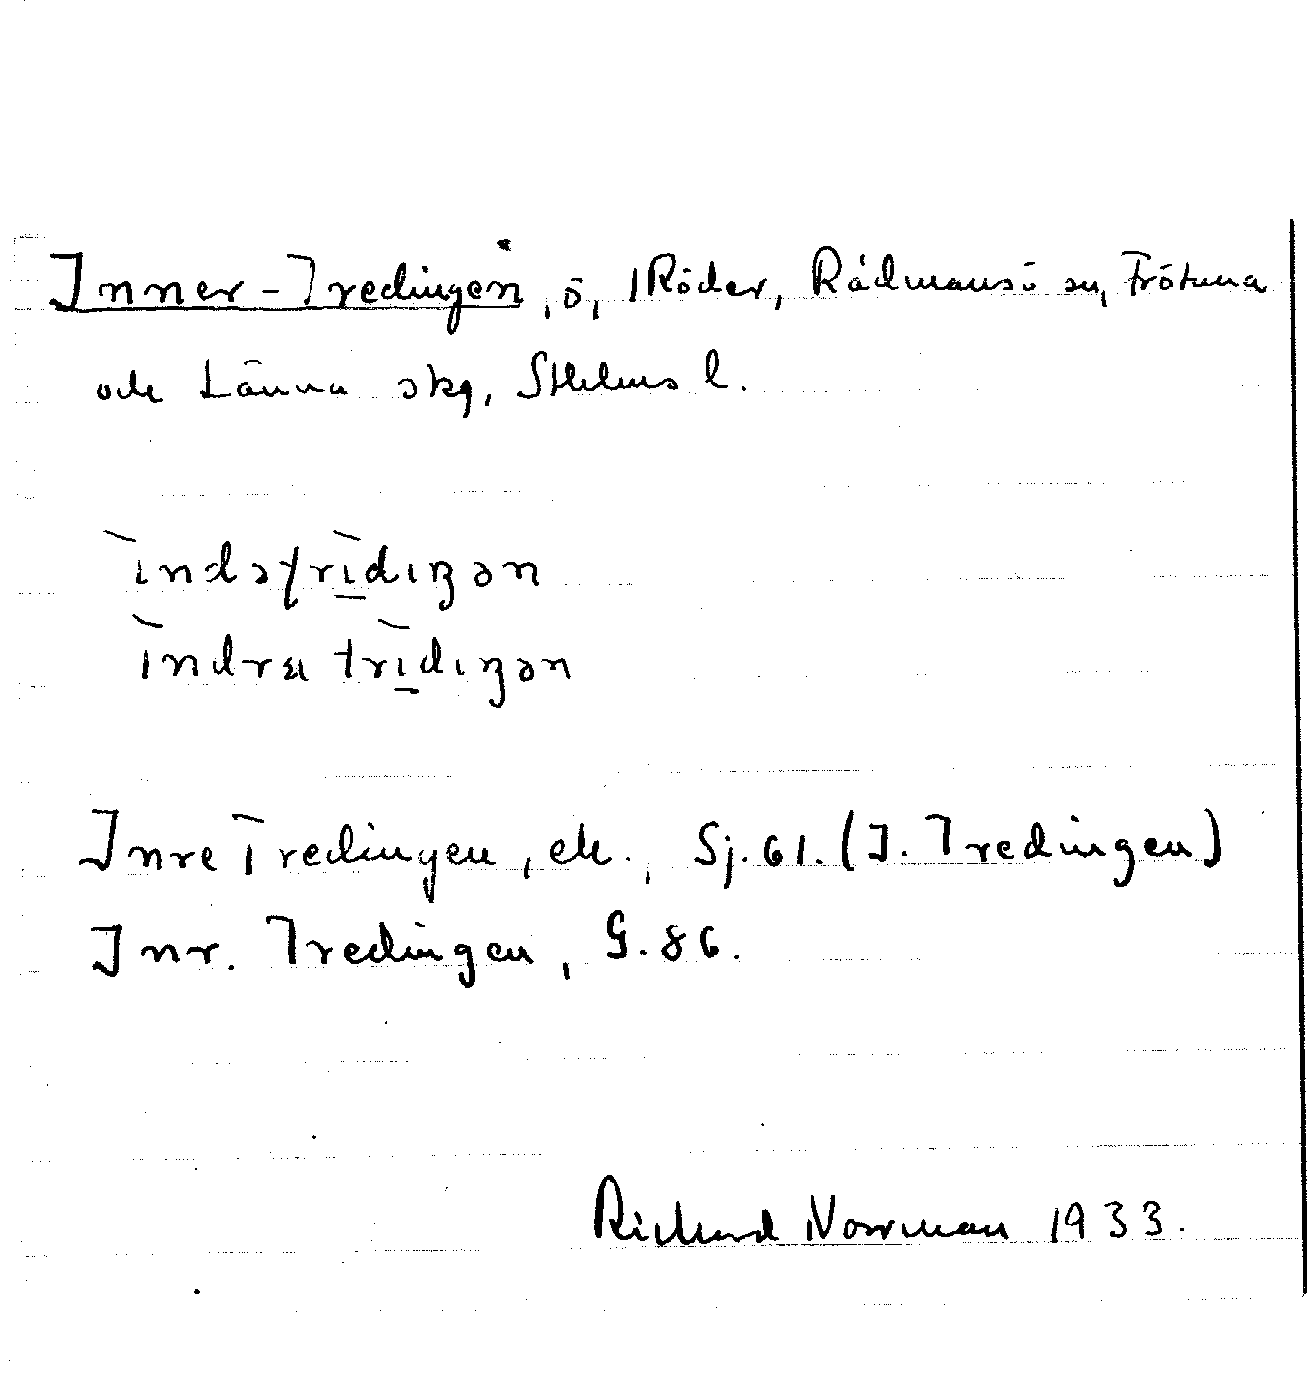 Inner-Tredingen, ö, 1 Röder, Rådmansö sn, Frötuna
och Länna skg, Sthlms l.
ìndətrìdiŋən
ìndra trìdiŋən
Inre Tredingen, ek., Sj. 61. (I. Tredingen)
Inr. Tredingen, G. 86.
Richard Norrman 1933.